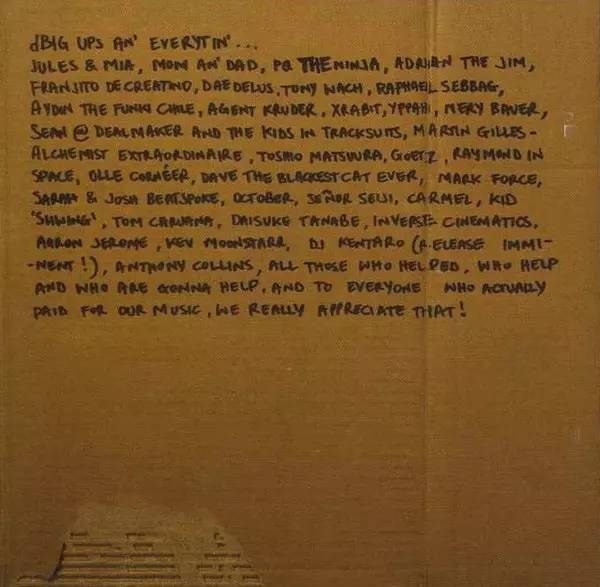 dBIG UPS AN' EVERYTIN'...
JULES & MIA, MOM AN' DAD, PQ THE NINJA, ADRIAN THE JIM,
FRANJITO DECREATINO, DAEDELUS, TONY WACH, RAPHAEL SEBBAG,
AYDIN THE FUNKI CHILE, AGENT KRUDER, XRABIT, YPPAH, MERY BAUER,
SEAN @ DEALMAKER AND THE KIDS IN TRACKSUITS, MARTIN GILLES-
ALCHEMIST EXTRAORDINAIRE, TOSHIO MATSUURA, GOETZ, RAYMOND IN
SPACE, OLLE CORNÉER, DAVE THE BLACKEST CAT EVER, MARK FORCE,
SARAH & JOSH BEATSPOKE, OCTOBER, SEÑOR SEIJI, CARMEL, KID
'SHWING', TOM CARUANA, DAISUKE TANABE, INVERSE CINEMATICS,
AARON JEROME, KEV MOONSTARR, DJ KENTARO (RELEASE IMMI-
-NENT!), ANTHONY COLLINS, ALL THOSE WHO HELPED, WHO HELP
AND WHO ARE GONNA HELP, AND TO EVERYONE WHO ACTUALLY
PAID FOR OUR MUSIC, WE REALLY APPRECIATE THAT!